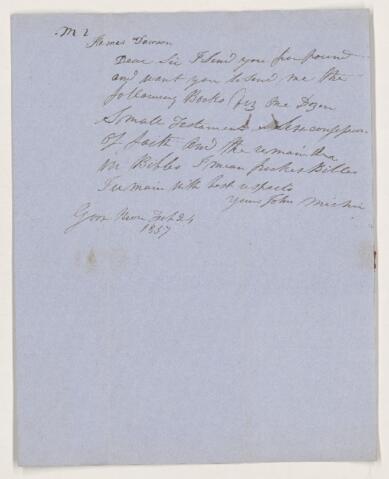 Mr
James Dawson
Dear Sir I Send you five pound
and want you to Send me the
following Books viz One Dozen
Smale Testament Six confession
of faith and the remainder
in Bibles I mean pocket Bibles
I remain with best respects
yours John
Goos River Feb 24
1857